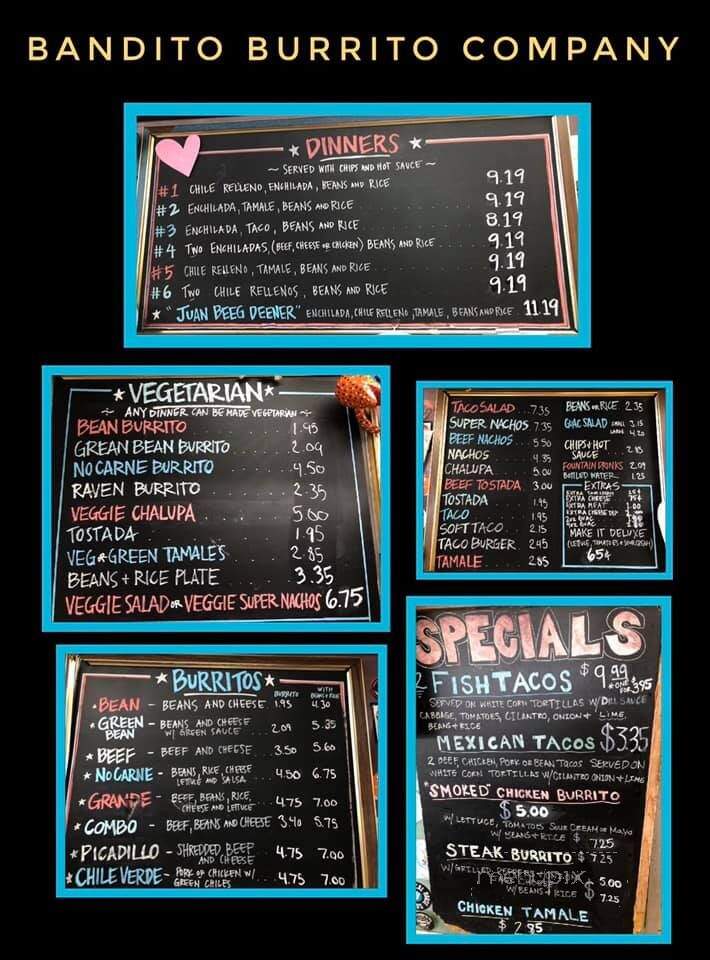 BANDITO BURRITO COMPANY
DINNERS
~ SERVED WITH CHIPS AND HOT SAUCE ~
#1 CHILE RELLENO, ENCHILADA, BEANS AND RICE 9.19
#2 ENCHILADA, TAMALE, BEANS AND RICE 9.19
#3 ENCHILADA, TACO, BEANS AND RICE 8.19
#4 TWO ENCHILADAS, (BEEF, CHEESE OR CHICKEN) BEANS AND RICE 9.19
#5 CHILE RELLENO, TAMALE, BEANS AND RICE 9.19
#6 TWO CHILE RELLENOS, BEANS AND RICE 9.19
"JUAN BEEG DEENER" ENCHILADA, CHILE RELLENO, TAMALE, BEANS AND RICE 11.19
VEGETARIAN
~ ANY DINNER CAN BE MADE VEGETARIAN ~
BEAN BURRITO 1.95
GREAN BEAN BURRITO 2.09
NO CARNE BURRITO 4.50
RAVEN BURRITO 2.35
VEGGIE CHALUPA 5.00
TOSTADA 1.95
VEG & GREEN TAMALES 2.85
BEANS + RICE PLATE 3.35
VEGGIE SALAD OR VEGGIE SUPER NACHOS 6.75
TACO SALAD ... 7.35
SUPER NACHOS 7.35
BEEF NACHOS 5.50
NACHOS 4.35
CHALUPA 5.00
BEEF TOSTADA 3.00
TOSTADA 1.95
TACO 1.95
SOFT TACO 2.15
TACO BURGER 2.45
TAMALE 2.85
BEANS OR RICE 2.35
GUAC SALAD SMALL 3.15
LARGE 4.20
CHIPS & HOT
SAUCE 2.85
FOUNTAIN DRINKS 2.09
BOTTLED WATER 1.25
EXTRAS
EXTRA SOUR CREAM
EXTRA CHEESE
EXTRA MEAT 1.00
EXTRA CHEESE DIP
2oz GUAC
4oz GUAC
MAKE IT DELUXE
(LETTUCE, TOMATOES & SOUR CREAM)
65¢
BURRITOS
BURRITO WITH BEANS & RICE
BEAN - BEANS AND CHEESE 1.95 4.30
GREEN BEAN - BEANS AND CHEESE W/ GREEN SAUCE 2.09 5.35
BEEF - BEEF AND CHEESE ... 3.50 5.60
NO CARNE - BEANS, RICE, CHEESE LETTUCE AND SALSA 4.50 6.75
GRANDE - BEEF, BEANS, RICE, CHEESE AND LETTUCE 4.75 7.00
COMBO - BEEF, BEANS AND CHEESE 3.40 5.75
PICADILLO - SHREDDED BEEF AND CHEESE 4.75 7.00
CHILE VERDE - PORK OR CHICKEN W/ GREEN CHILES 4.75 7.00
SPECIALS
2 FISH TACOS $9.99
*ONE FOR 3.95
SERVED ON WHITE CORN TORTILLAS W/ DILL SAUCE
CABBAGE, TOMATOES, CILANTRO, ONION & LIME,
BEANS & RICE
MEXICAN TACOS $3.35
2 BEEF, CHICKEN, PORK OR BEAN TACOS SERVED ON
WHITE CORN TORTILLAS W/ CILANTRO ONION & LIME
"SMOKED" CHICKEN BURRITO
$5.00
W/ LETTUCE, TOMATOES SOUR CREAM OR MAYO
W/ BEANS & RICE $ 7.25
STEAK BURRITO $7.25
W/ GRILLED PEPPERS
5.00
W/ BEANS & RICE $ 7.25
menupix
CHICKEN TAMALE
$2.85